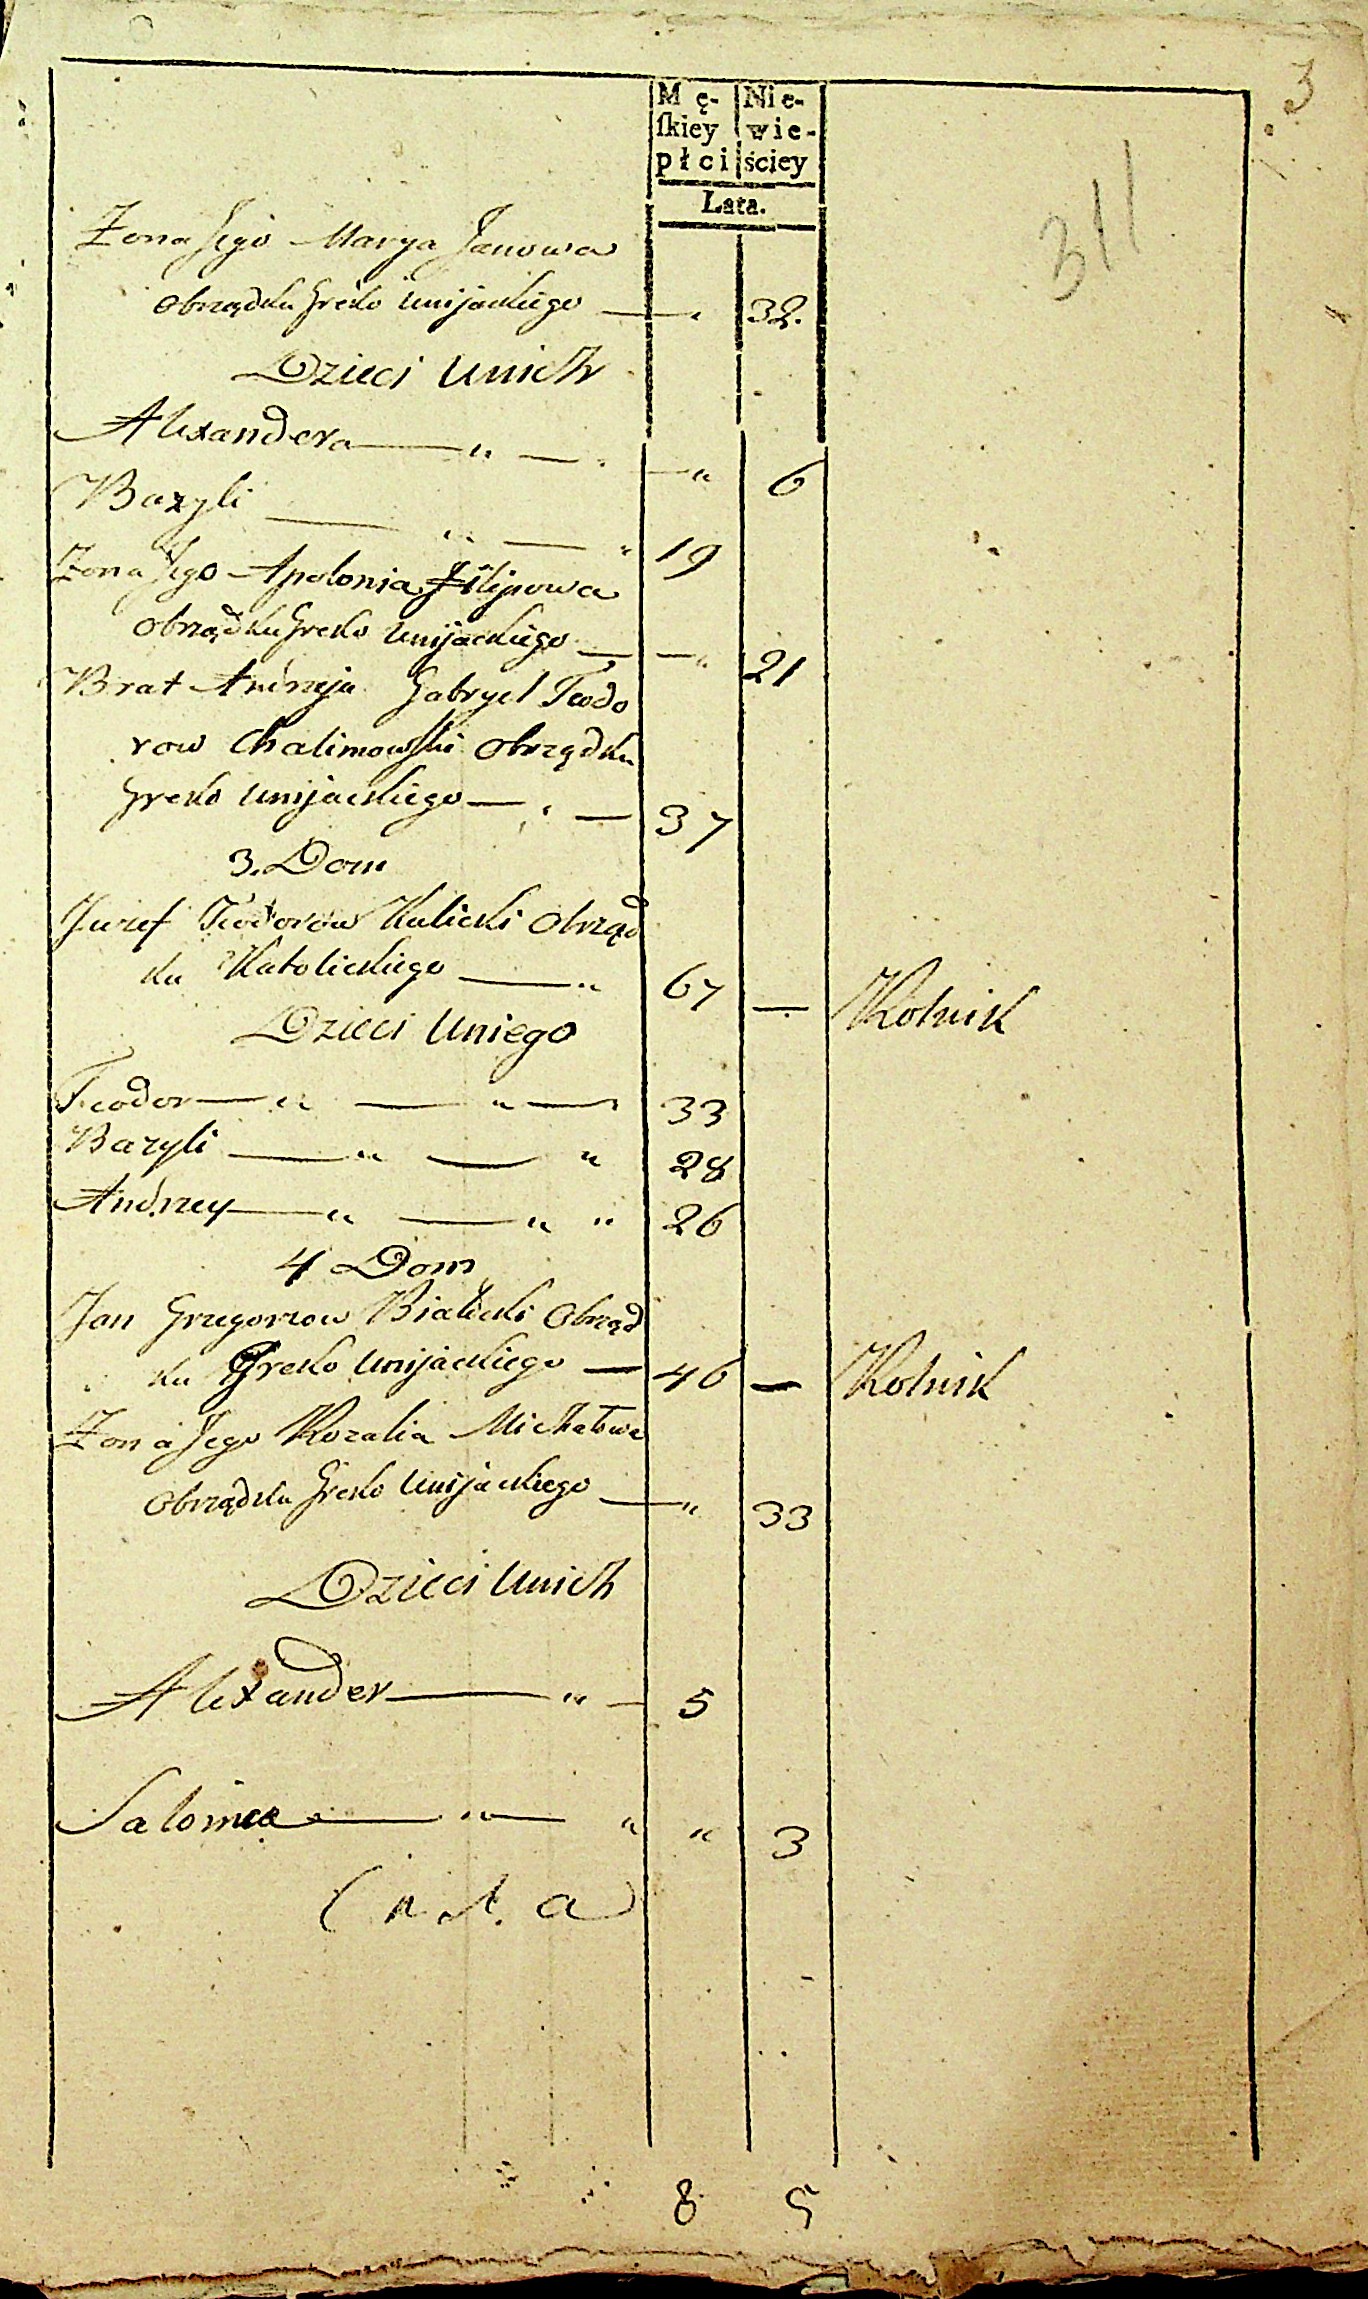 3
311
Mę- Nie-
ſkiey wie-
płci ściey
Lata.
Zona Jego Marya Janowa
obrządku Greko Unijackiego — " 32.
Dzieci Unich
Alexandera — " — " — " 6
Bazyli — " — " 19
Zona Jego Apolonia Filipowa
obrządku Greko Unijackiego — — " 21
Brat Andrzeja Gabryel Teodo
row Chalimowski obrządku
Greko Unijackiego — " — 37
3. Dom
Juzef Teodorow Kulicki obrząd
ku Katolickiego — " 67 — Rolnik
Dzieci Uniego
Teodor — " — " — 33
Bazyli — " — " 28
Andrzey — " — " " 26
4 Dom
Jan Grzegorzow Bialicki obrząd
ku Greko Unijackiego — 46 — Rolnik
Zona Jego Rozalia Michałowa
obrządku Greko Unijackiego — " 33
Dzieci Unich
Alexander — " — 5
Salomea — " — " " 3
8 5